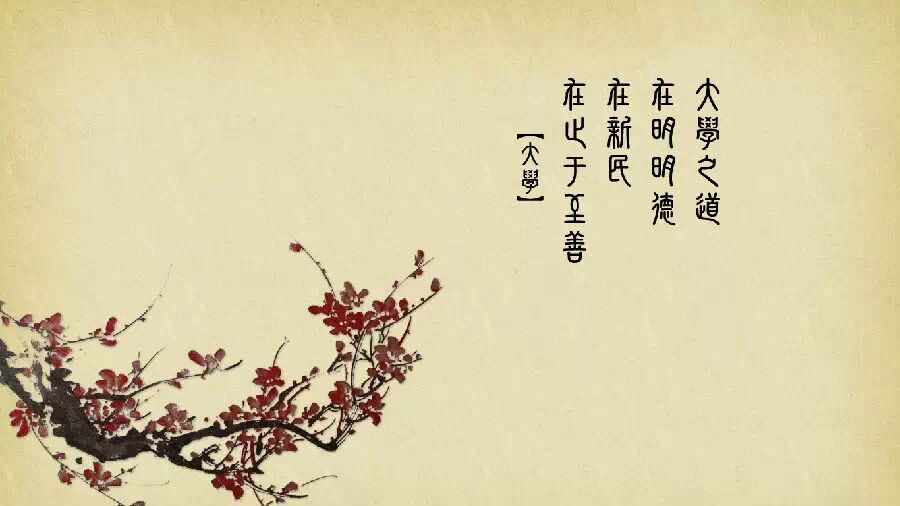 大學之道
在明明德
在新民
在止于至善
【大學】